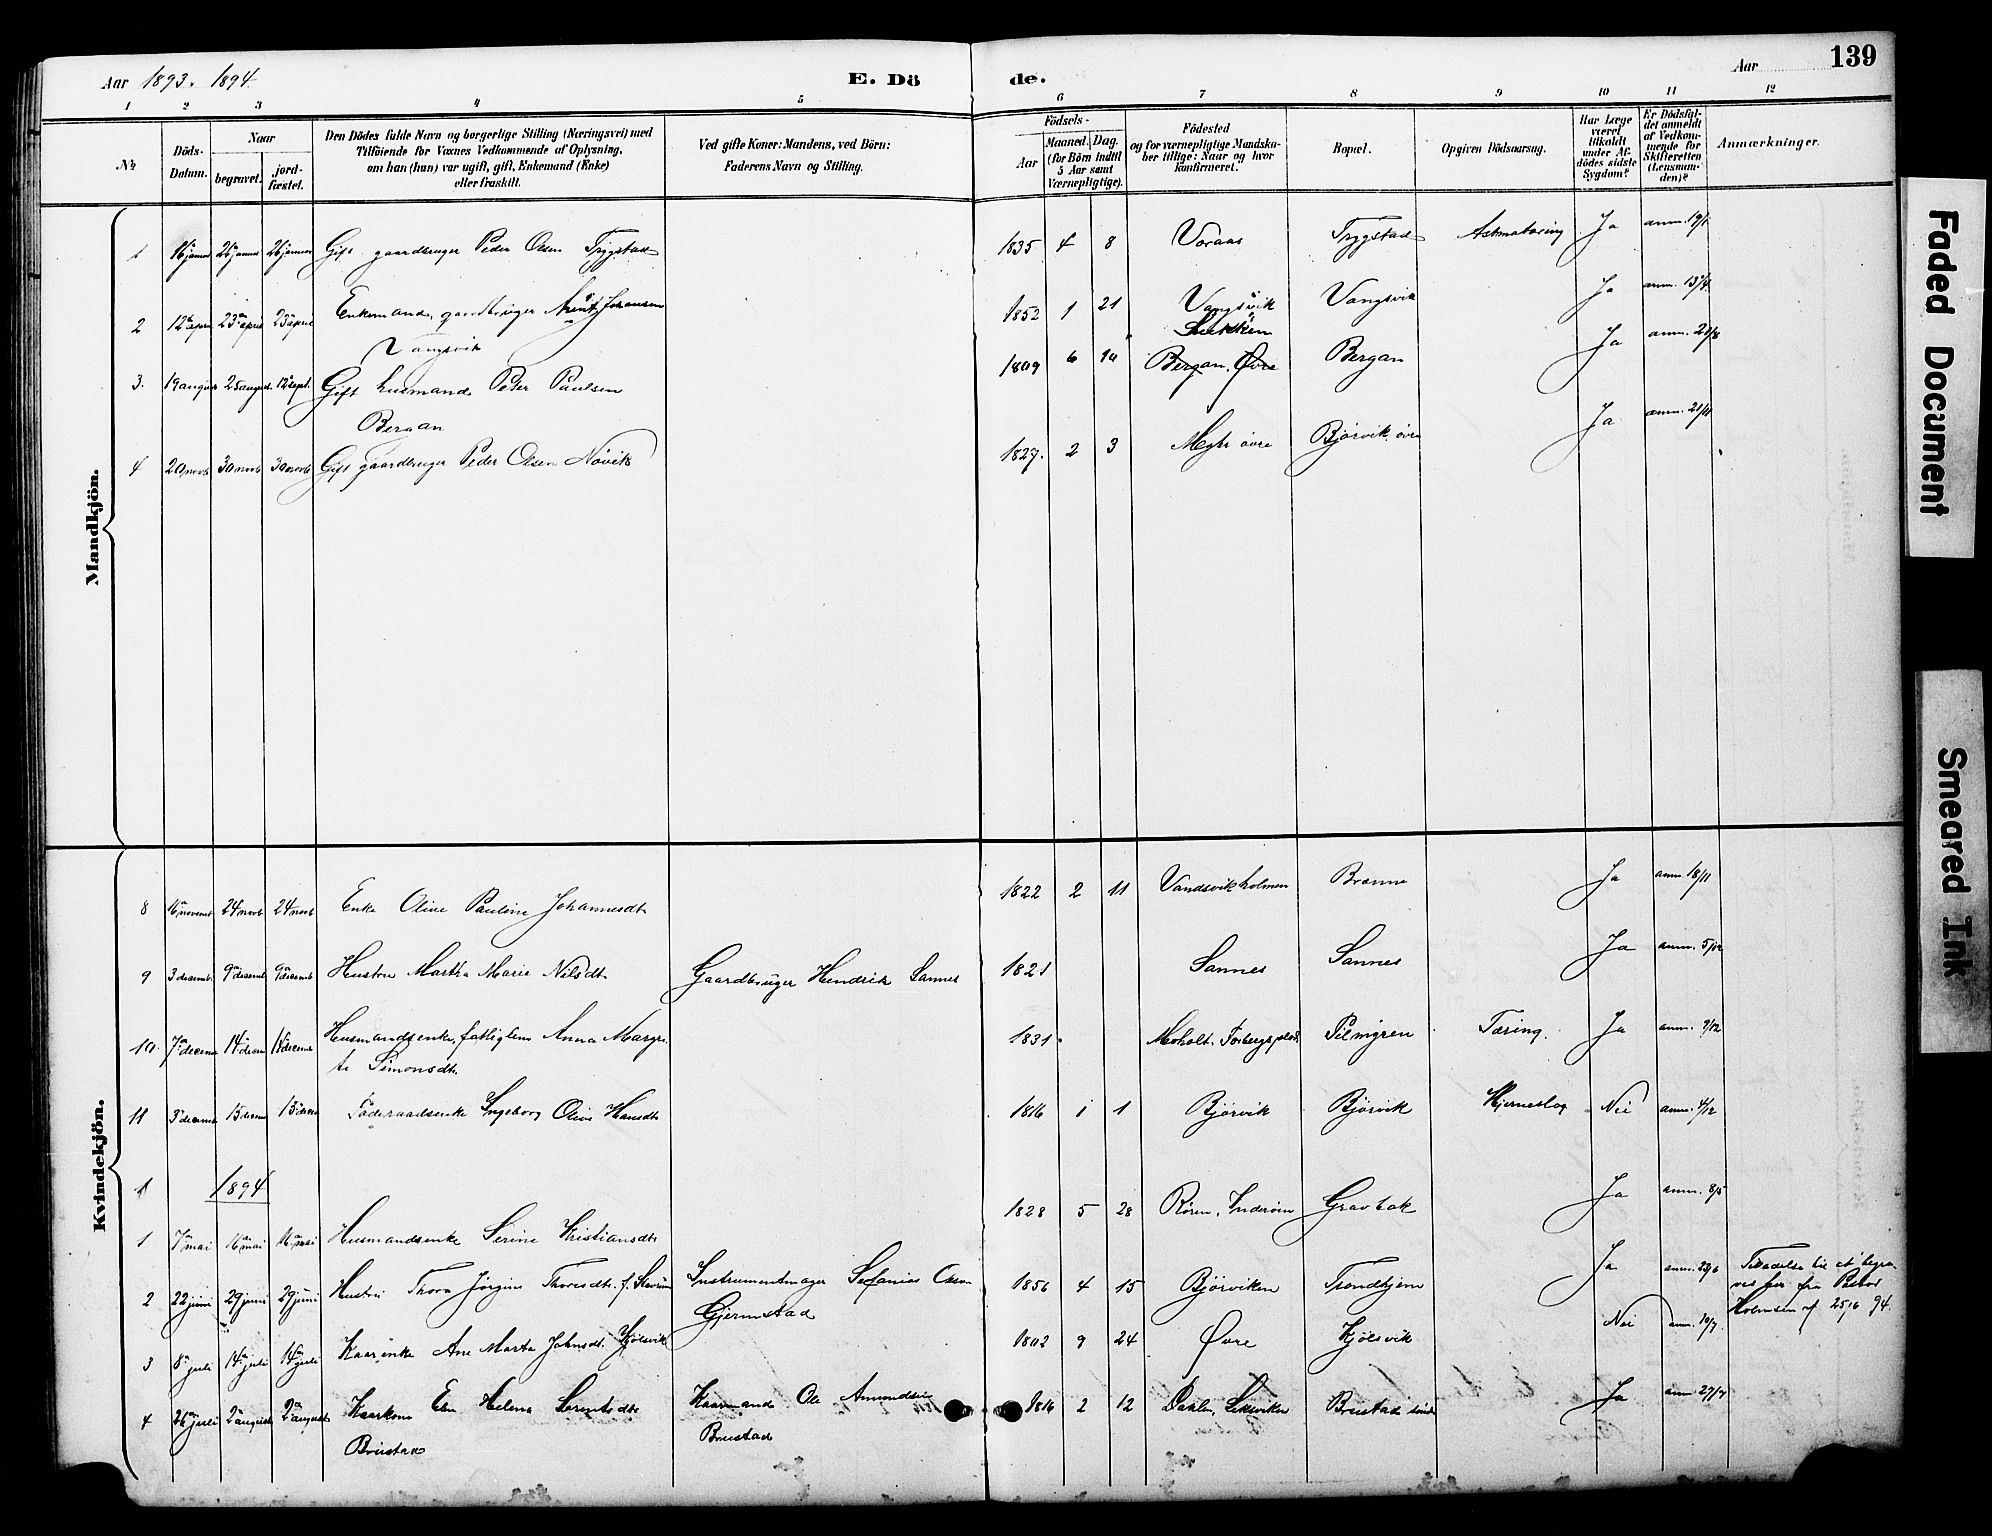 Aar 1893. 1894.
E. Dö
de.
Aar
139
1 2 3 4 5 6 7 8 9 10 11 12
№
Döds-
Datum.
Naar
begravet.
jord-
fæstet.
Den Dödes fulde Navn og borgerlige Stilling (Næringsvei) med
Tilföiende for Voxnes Vedkommende af Oplysning,
om han (hun) var ugift, gift, Enkemand (Enke)
eller fraskilt.
Ved gifte Koner: Mandens, ved Börn:
Faderens Navn og Stilling.
Födsels-
Aar
Maaned. Dag.
(for Börn indtil
5 Aar samt
Værnepligtige).
Födested
og for værnepligtige Mandska-
ber tillige: Naar og hvor
konfirmeret.
Bopæl.
Opgiven Dödsaarsag.
Har Læge
været
tilkaldt
under Af-
dödes sidste
Sygdom?
Er Dödsfal-
det anmeldt
af Vedkom-
mende for
Skifteretten
(Lensman-
den)?
Anmærkninger.
Mandkjön.
1 16 januar 26 januar 26 januar Gift gaardbruger Peder Olsen Trygstad 1835 4 8 Voraas Trygstad Ja anm. 19/1
2 12 april 23 april 23 april Enkemand, gaardbruger Arent Johansen 1852 1 21 Vangsvik Vangsvik Ja anm. 13/4
Vangsvik
3. 19 august 25 august 12 sept. Gift husmand Peter Paulsen 1809 6 10 Bergan, Øvre Bergan Ja anm. 21/8
Bergan
4 20 novb 30 novb 30 novb Gift gaardbruger Peder Olsen Növik 1827. 2 3 Myhr övre Bjørvik övre Ja anm. 21/11
Kvindekjön.
8 16 novemb 24 novb 24 novb Enke Oline Pauline Johannesdt. 1822 2 11 Vandsvikholmen Brænne Ja anm. 18/11
9 3 decemb. 9 decemb 9 decemb Hustru Martha Marie Nilsdt. Gaardbruger Hendrik Sannes 1821 Sannes Sannes Ja anm. 5/12
10. 7 decemb 14 decem 14 decemb Husmandsenke, fattiglem Anna Margre- 1831 Moholt. Forbergsplads Pilmyren Tæring. Ja anm. 9/12
te Simonsdt.
11 3 decemb 15 decem 15 decem Föderaadsenke Ingeborg Olive Hansdt. 1816 1 1 Bjørvik Bjørvik Hjerneslag Nei anm. 4/12
1 1894
1 7 mai 16 mai 16 mai Husmandsenke Serine Kristiansdt. 1828 5 28 Røren, Inderøen Gravbak Ja anm. 8/5
2 22 juni 29 juni 29 juni Hustru Thora Jørgine Thoresdt. f. Instrumentmager Sefanias Olsen 1856 4 15 Bjørviken Trondhjem Ja anm. 23/6 Tilladelse til at begra-
Gjermstad
ves her fra Pastor
Holmsen af 25/6 94.
3 8 juli 14 juli 14 juli Kaarenke Ane Marta Johnsdt. Kjølsvik 1802 9 24 Øvre Kjølsvik Nei anm. 10/7
4 26 juli 2 august 2 august Kaarkone Elen Helena Lorentsdt. Kaarmand Ole Amundsen 1816 2 12 Dahlen, Leksviken Breistad Ja anm 27/7
Breistad
Breistad
Faded Document
Smeared Ink